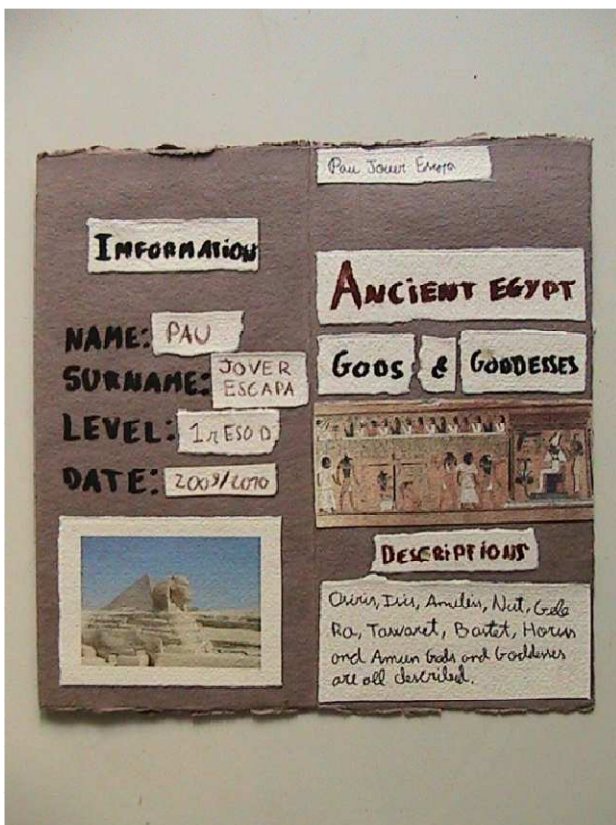 INFORMATION
NAME: PAU
SURNAME: JOVER
ESCAPA
LEVEL: 1r ESO D
DATE: 2009/2010
Pau Jover Escapa
ANCIENT EGYPT
GODS & GODDESSES
DESCRIPTIONS
Osiris, Isis, Anubis, Nut, Gebb
Ra, Tawaret, Bastet, Horus
and Amun Gods and Goddesses
are all described.